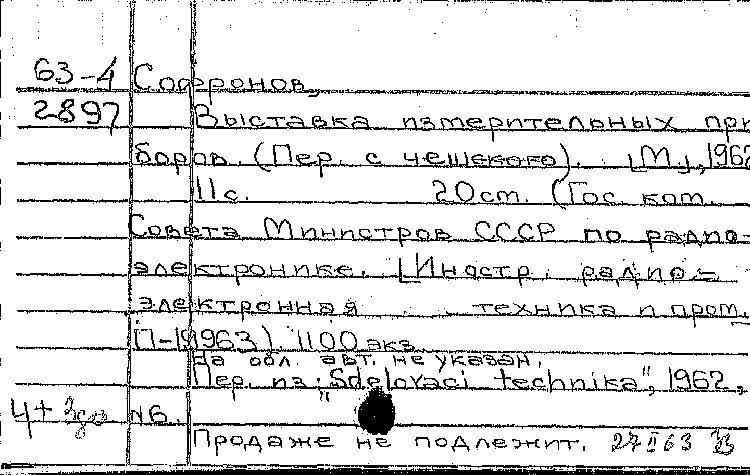 63-4 Софронов,
2897 Выставка измерительных при
боров. (Пер. с чешского). [М.], 1962
11с. 20cm. (Гос. ком.
Совета Министров СССР по радио-
электронике. [Иностр. радио-
электронная техника и пром.
П-19963). 1100 экз.
На обл. авт. не указан.
Пер. из: "Sdelovaci technika", 1962,
4+ N6.
Продаже не подлежит. 27 II 63